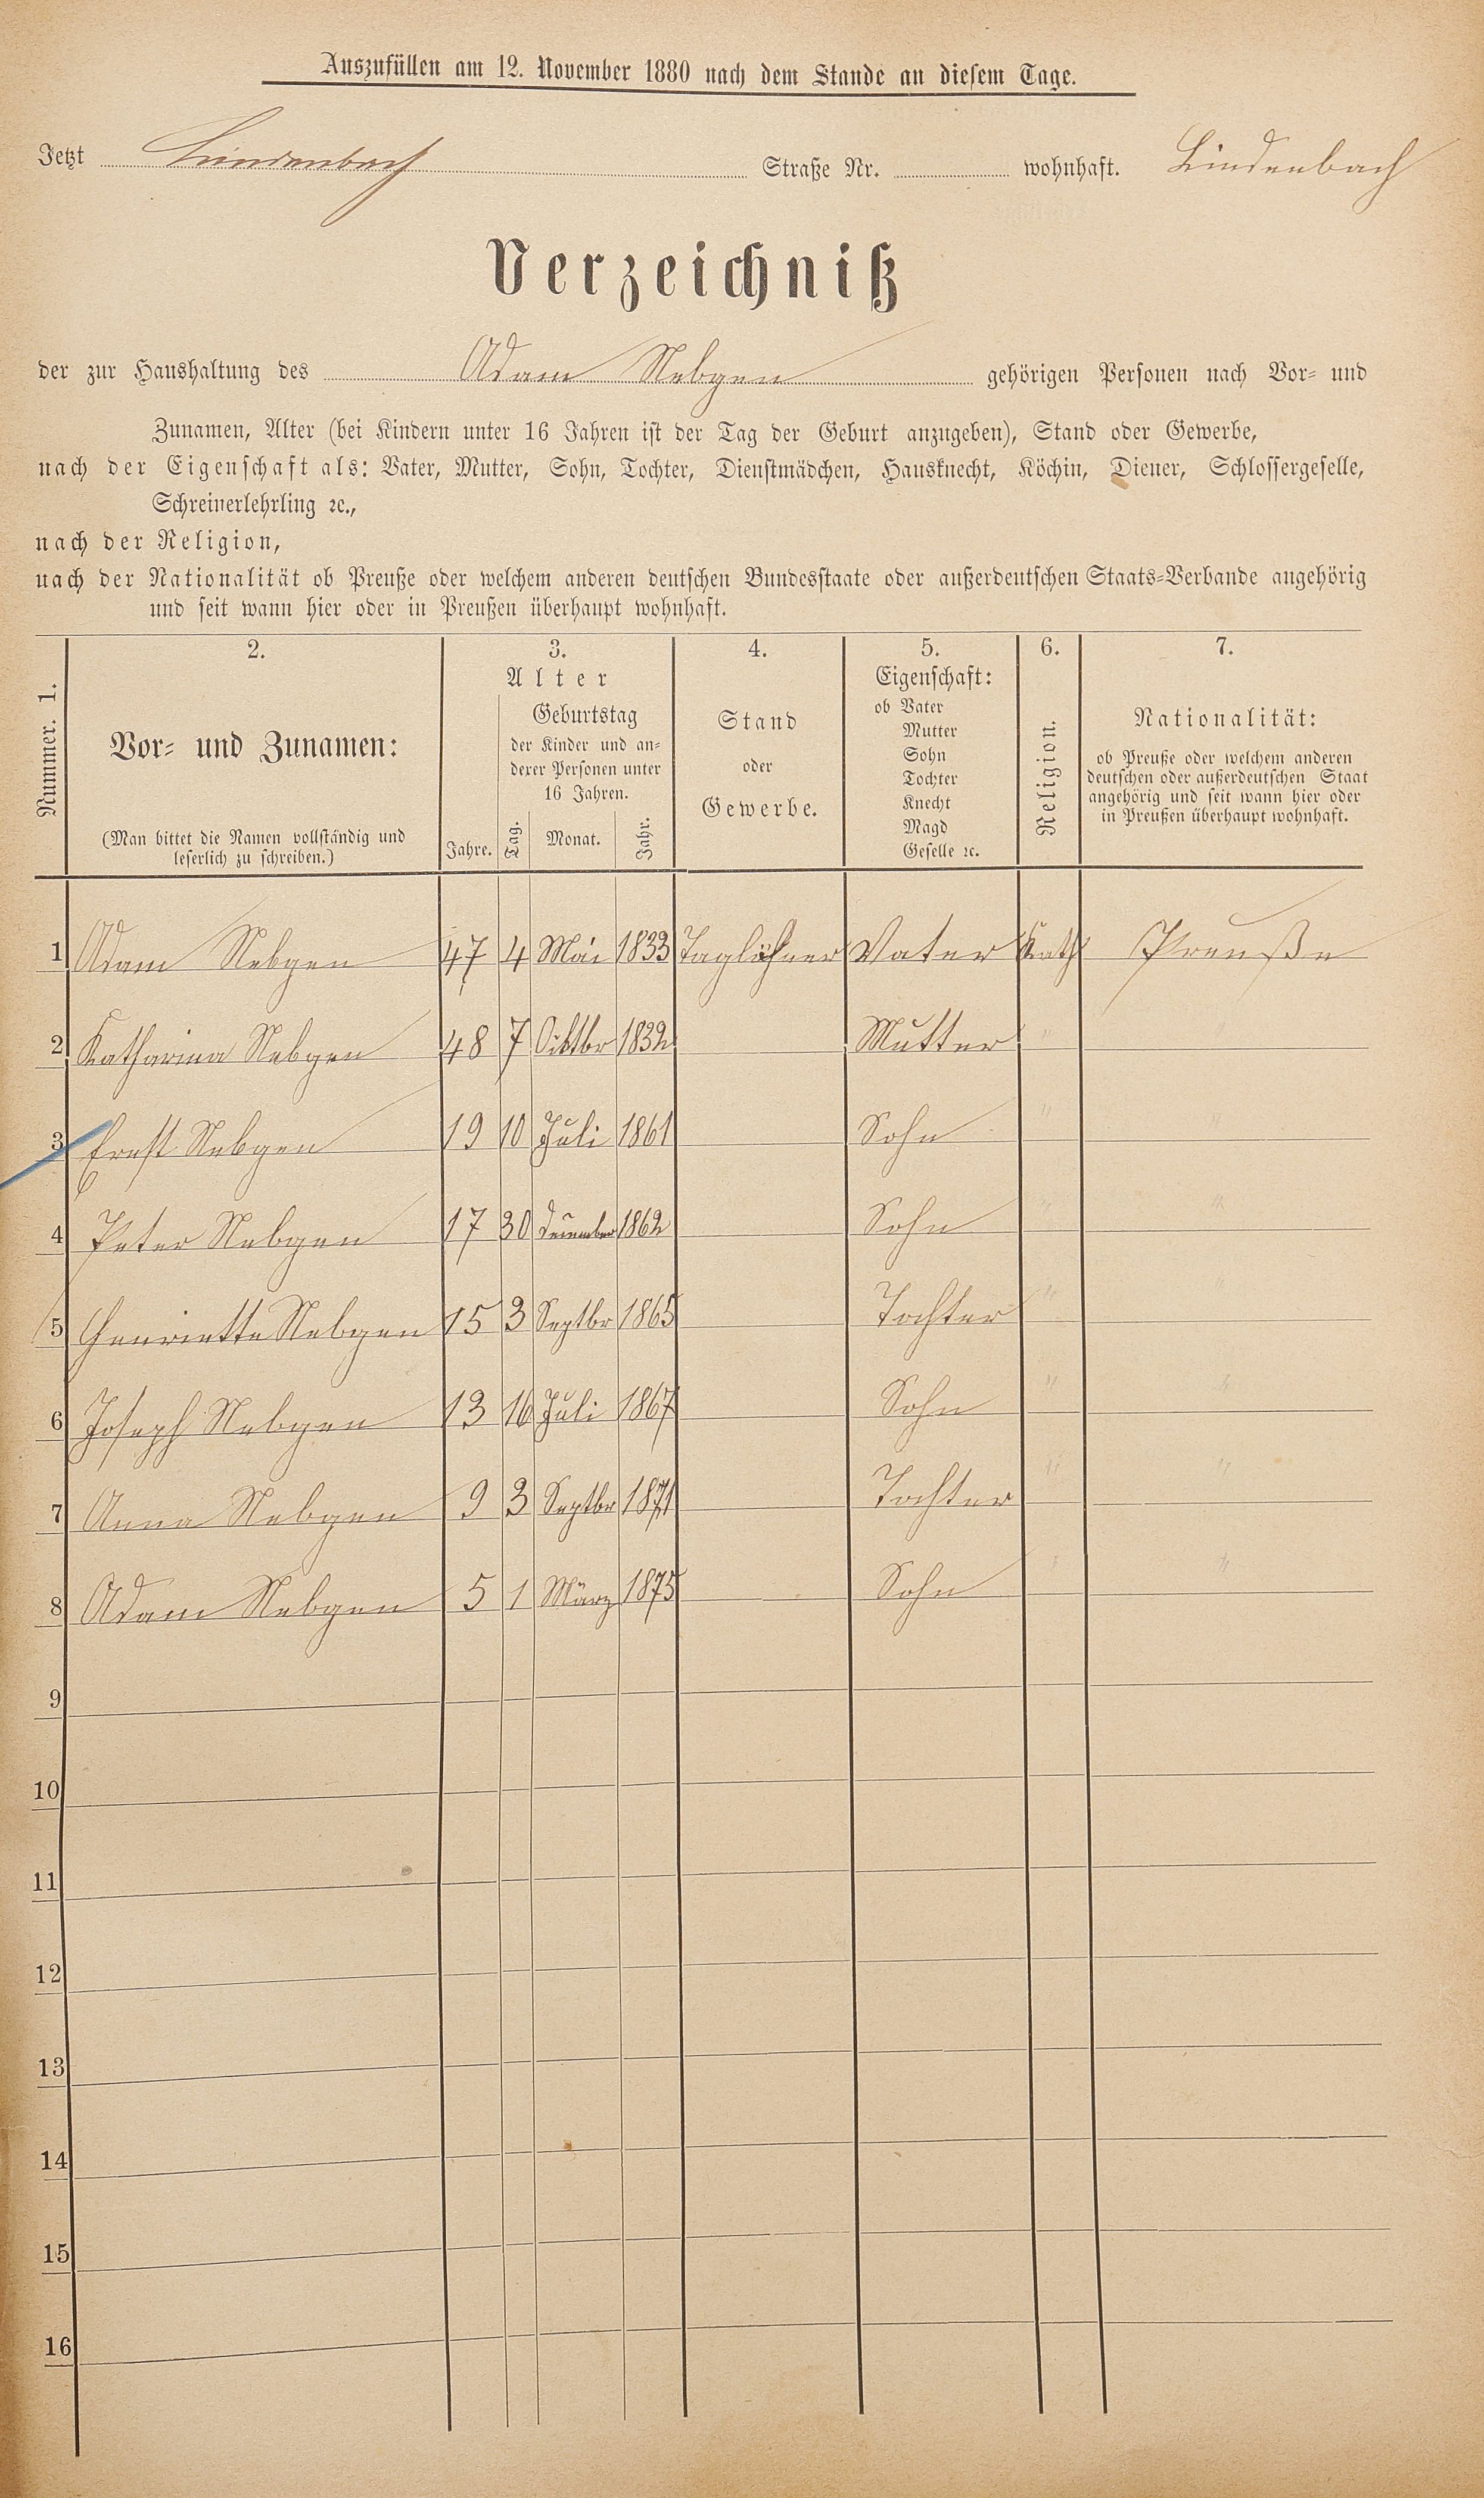 Auszufüllen am 12. November 1880 nach dem Stande an diesem Tage.
Jetzt Lindenbach Straße Nr. wohnhaft. Lindenbach
Verzeichniß
der zur Haushaltung des Adam Nebgen gehörigen Personen nach Vor- und
Zunamen, Alter (bei Kindern unter 16 Jahren ist der Tag der Geburt anzugeben), Stand oder Gewerbe,
nach der Eigenschaft als: Vater, Mutter, Sohn, Tochter, Dienstmädchen, Hausknecht, Köchin, Diener, Schlossergeselle,
Schreinerlehrling ꝛc.,
nach der Religion,
nach der Nationalität ob Preuße oder welchem anderen deutschen Bundesstaate oder außerdeutschen Staats-Verbande angehörig
und seit wann hier oder in Preußen überhaupt wohnhaft.
Nummer. 1.
2.
Vor- und Zunamen:
(Man bittet die Namen vollständig und
leserlich zu schreiben.)
3.
Alter
Jahre.
Geburtstag
der Kinder und an-
derer Personen unter
16 Jahren.
Tag. Monat. Jahr.
4.
Stand
oder
Gewerbe.
5.
Eigenschaft:
ob Vater
Mutter
Sohn
Tochter
Knecht
Magd
Geselle ꝛc.
6.
Religion.
7.
Nationalität:
ob Preuße oder welchem anderen
deutschen oder außerdeutschen Staat
angehörig und seit wann hier oder
in Preußen überhaupt wohnhaft.
1 Adam Nebgen 47 4 Mai 1833 Taglöhner Vater Kath Preuße
2 Katharina Nebgen 48 7 Oktbr 1832 Mutter " "
3 Ernst Nebgen 19 10 Juli 1861 Sohn " "
4 Peter Nebgen 17 30 December 1862 Sohn " "
5 Henriette Nebgen 15 3 Septbr 1865 Tochter " "
6 Joseph Nebgen 13 16 Juli 1867 Sohn " "
7 Anna Nebgen 9 3 Septbr 1871 Tochter " "
8 Adam Nebgen 5 1 März 1875 Sohn " "
9
10
11
12
13
14
15
16